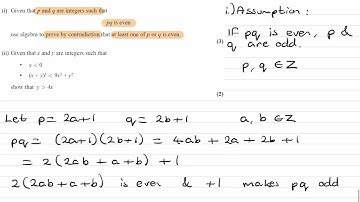 (i) Given that p and q are integers such that
pq is even
use algebra to prove by contradiction that at least one of p or q is even.
(3)
(ii) Given that x and y are integers such that
• x < 0
• (x + y)² < 9x² + y²
show that y > 4x
(2)
i.) Assumption :
If pq is even, p &
q are odd.
p, q ∈ ℤ
Let p = 2a+1 q = 2b+1 a, b ∈ ℤ
pq = (2a+1)(2b+1) = 4ab + 2a + 2b + 1
= 2(2ab + a + b) + 1
2(2ab + a + b) is even & +1 makes pq odd